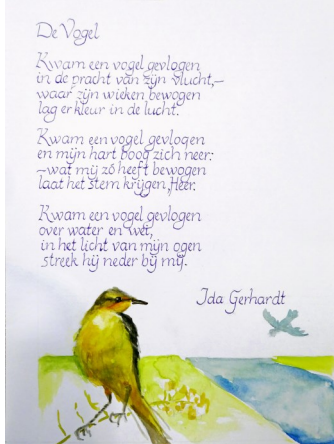 De Vogel
Kwam een vogel gevlogen
in de pracht van zijn vlucht,–
waar zijn wieken bewogen
lag er kleur in de lucht.
Kwam een vogel gevlogen
en mijn hart boog zich neer:
–wat mij zó heeft bewogen
laat het stem krijgen, Heer.
Kwam een vogel gevlogen
over water en wei,
in het licht van mijn ogen
streek hij neder bij mij.
Ida Gerhardt